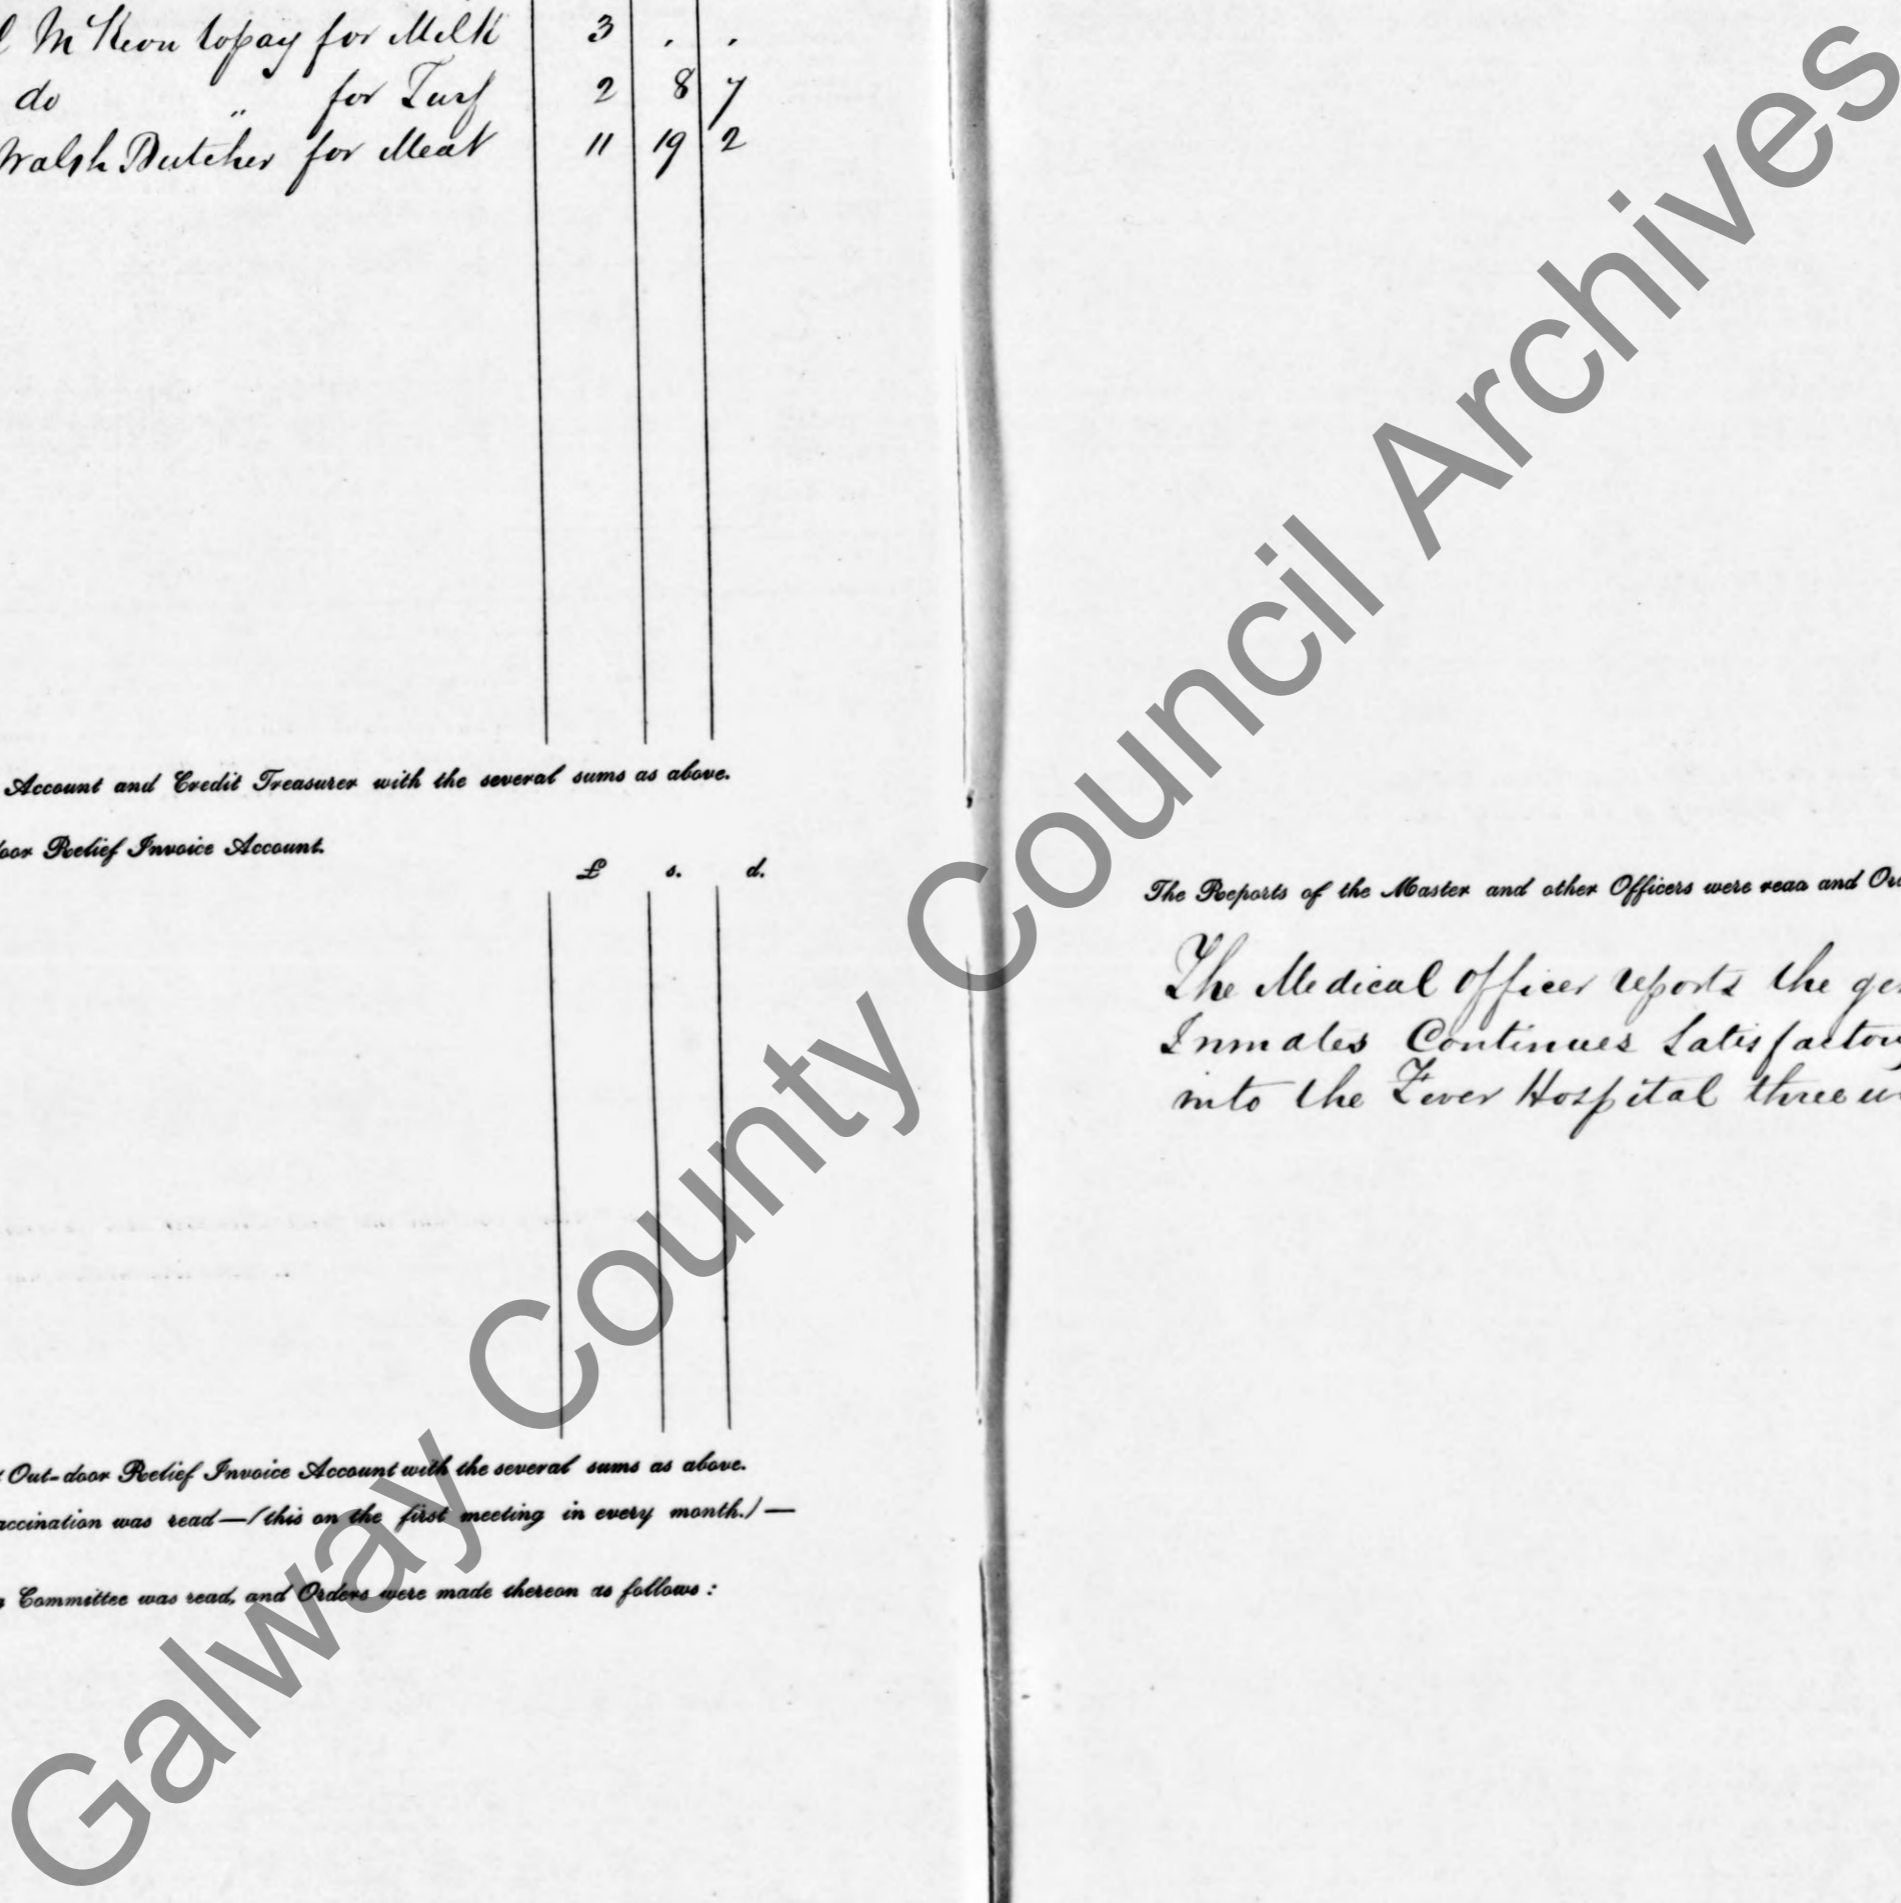 McKeon to pay for Milk 3 . .
do " for Turf 2 8 7
Walsh Butcher for Meat 11 19 2
Account and Credit Treasurer with the several sums as above.
Relief Invoice Account.
£ s. d.
Out-door Relief Invoice Account with the several sums as above.
was read—(this on the first meeting in every month.)—
Committee was read, and Orders were made thereon as follows:
The Reports of the Master and other Officers were read and
The Medical Officer reports the
Inmates Continues Satisfactory
into the Fever Hospital three
Galway County Council Archives